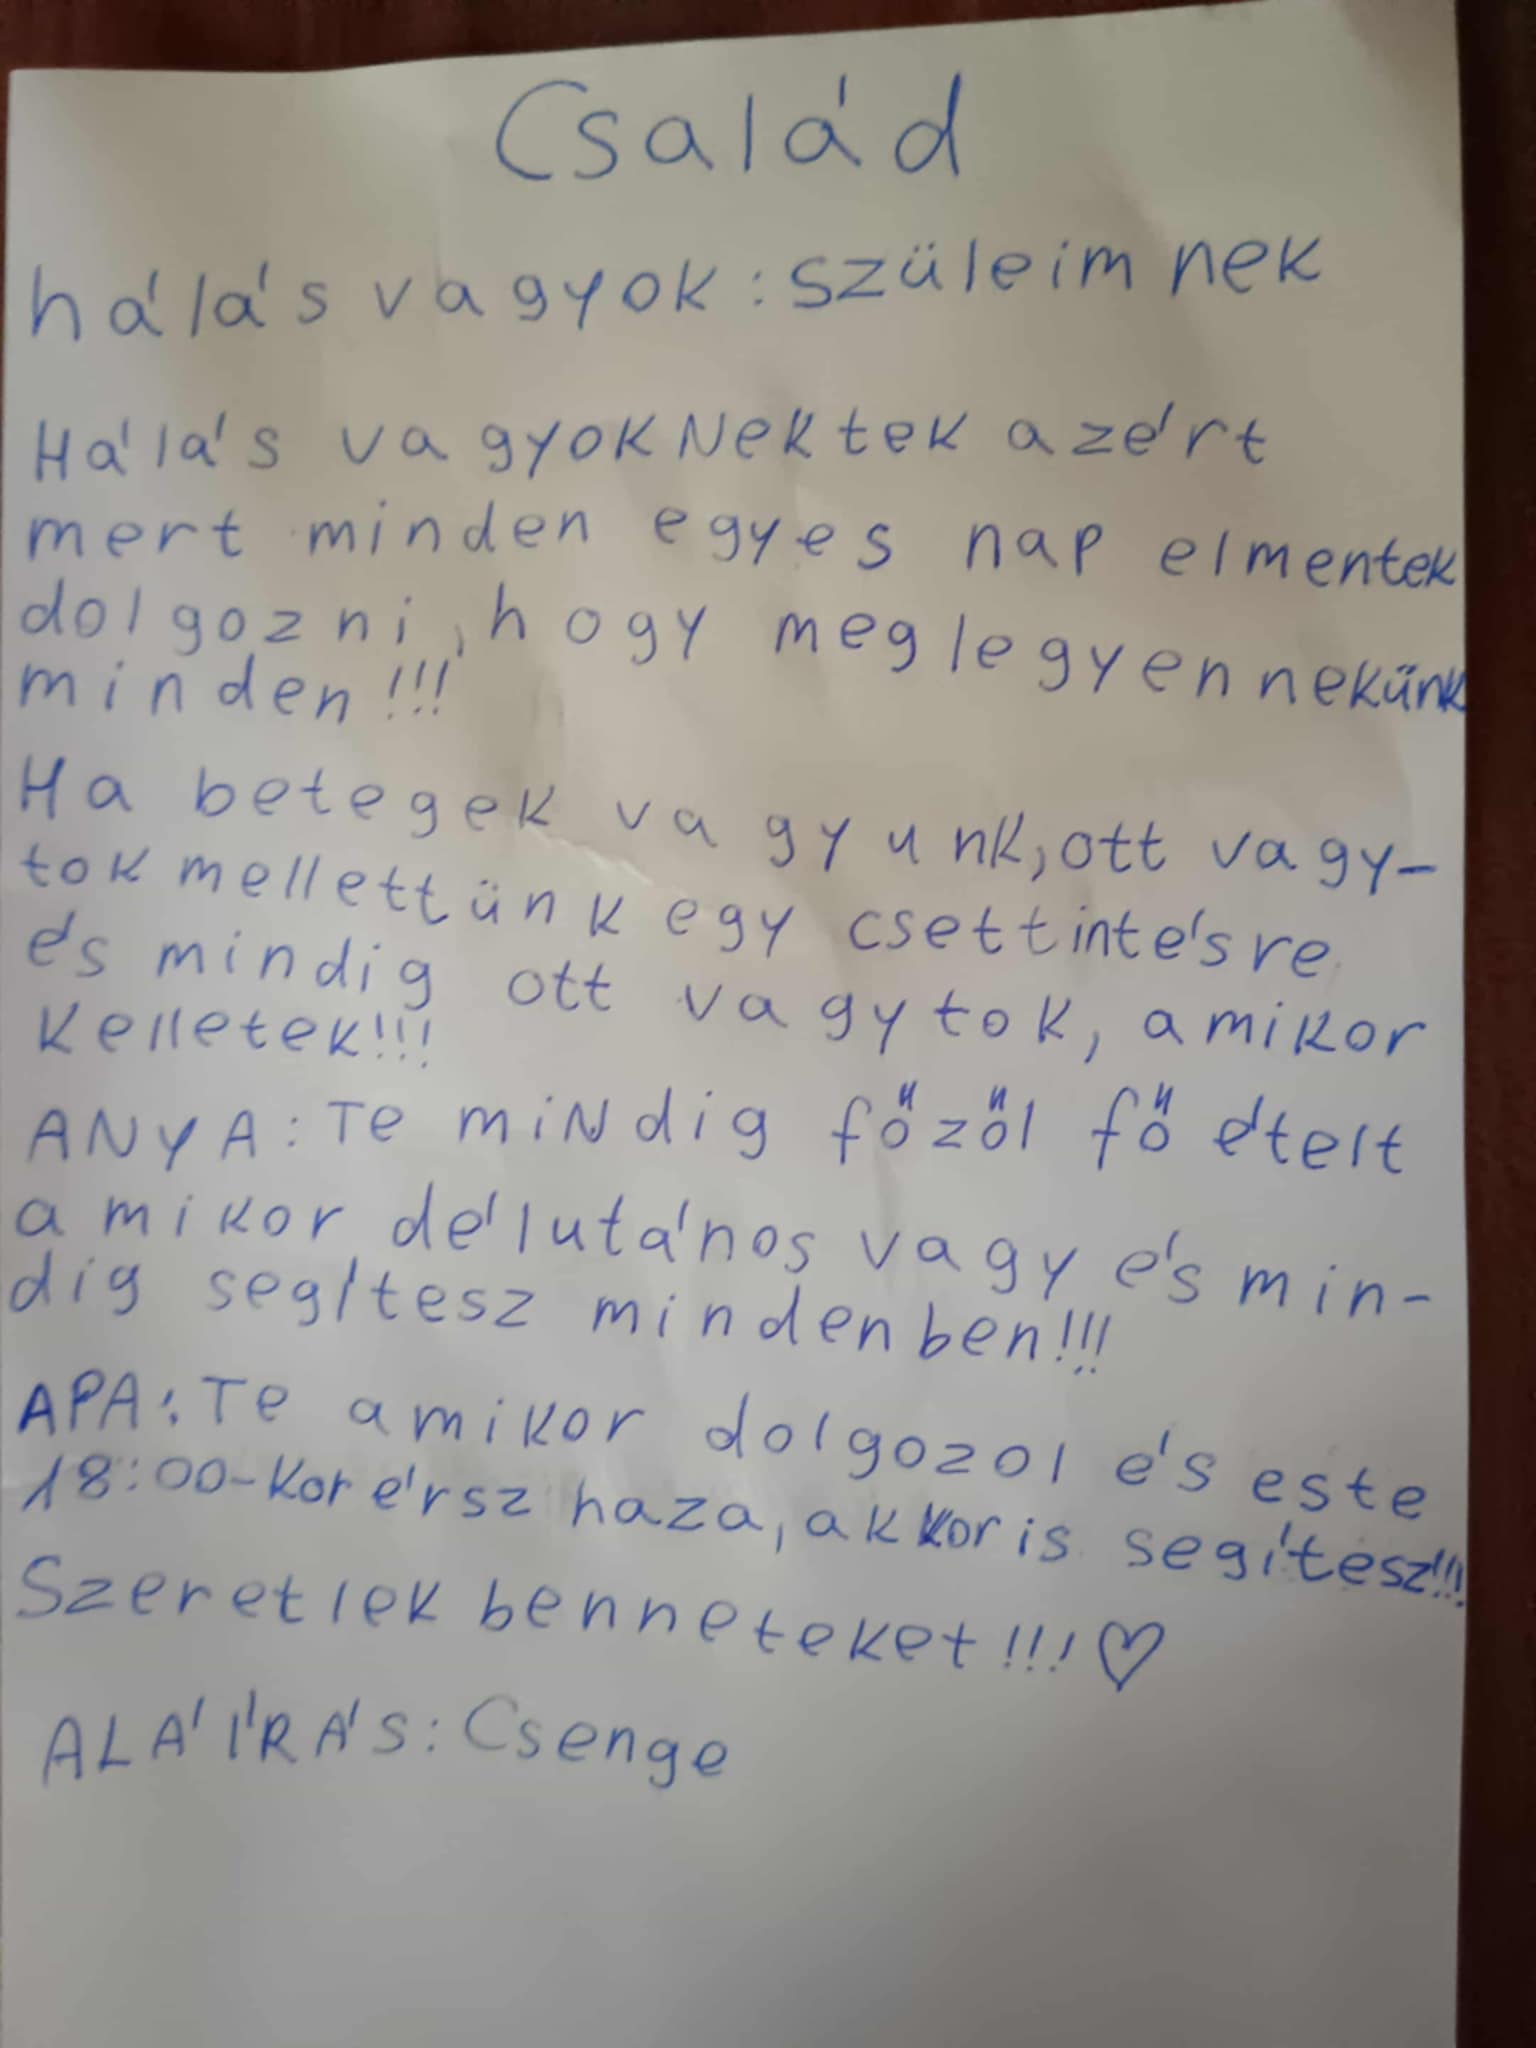 Család
hálás vagyok: szüleimnek
Hálás vagyok Nektek azért
mert minden egyes nap elmentek
dolgozni, hogy meg legyen nekünk
minden!!!
Ha betegek vagyunk, ott vagy-
tok mellettünk egy csettintésre
és mindig ott vagytok, amikor
kelletek!!!
ANYA: Te miNdig főzől fő ételt
amikor délutános vagy és min-
dig segítesz mindenben!!!
APA: Te amikor dolgozol és este
18:00-kor érsz haza, akkor is segítesz!!!
Szeretlek benneteket!!! ♡
ALÁÍRÁS: Csenge